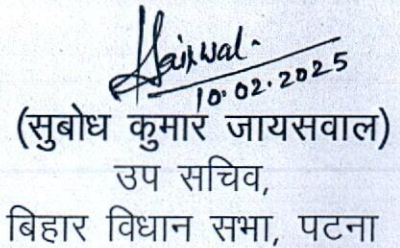 Jaiswal.
10.02.2025
(सुबोध कुमार जायसवाल)
उप सचिव,
बिहार विधान सभा, पटना